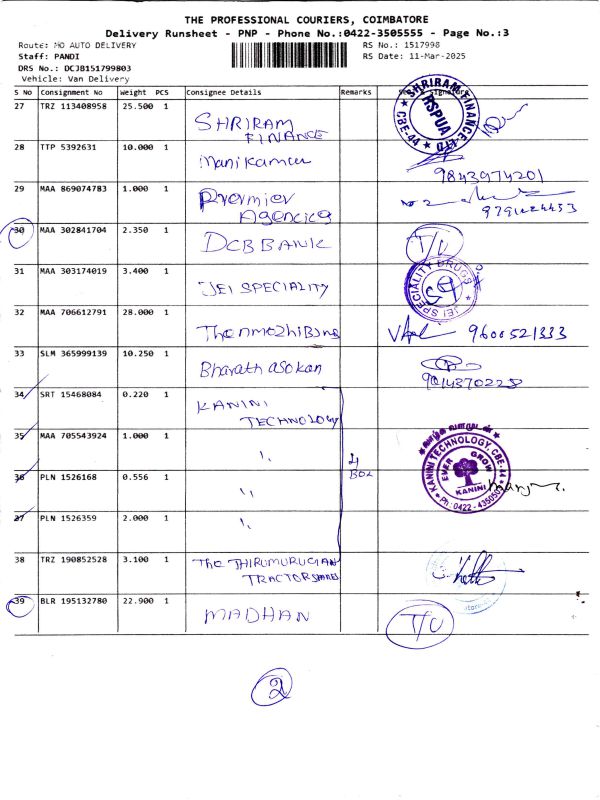 THE PROFESSIONAL COURIERS, COIMBATORE
Delivery Runsheet - PNP - Phone No.:0422-3505555 - Page No.:3
Route: MO AUTO DELIVERY
RS No.: 1517998
Staff: PANDI
RS Date: 11-Mar-2025
DRS No.: DCJB151799803
Vehicle: Van Delivery
S NO Consignment No Weight PCS Consignee Details Remarks
27 TRZ 113408958 25.500 1 SHRIRAM FINANCE
SHRIRAM FINANCE LTD
RSPUA
CBE-44
28 TTP 5392631 10.000 1 Manikamar
9843974201
29 MAA 869074783 1.000 1 Premier Agencies
30 MAA 302841704 2.350 1 DCB BANK T/U
31 MAA 303174019 3.400 1 JEI SPECIALITY
JEI SPECIALITY DRUGS
32 MAA 706612791 28.000 1 9600521333
33 SLM 365999139 10.250 1 Bharath asokan
9014370228
34 SRT 15468084 0.220 1 KANINI TECHNOLOGY
35 MAA 705543924 1.000 1 "
4 Box
KANINI TECHNOLOGY, CBE-44
EVER GROW
KANINI
36 PLN 1526168 0.556 1 "
37 PLN 1526359 2.000 1 "
38 TRZ 190852528 3.100 1 The THIRUMURUGAN TRACTOR
39 BLR 195132780 22.900 1 MADHAN T/U
2